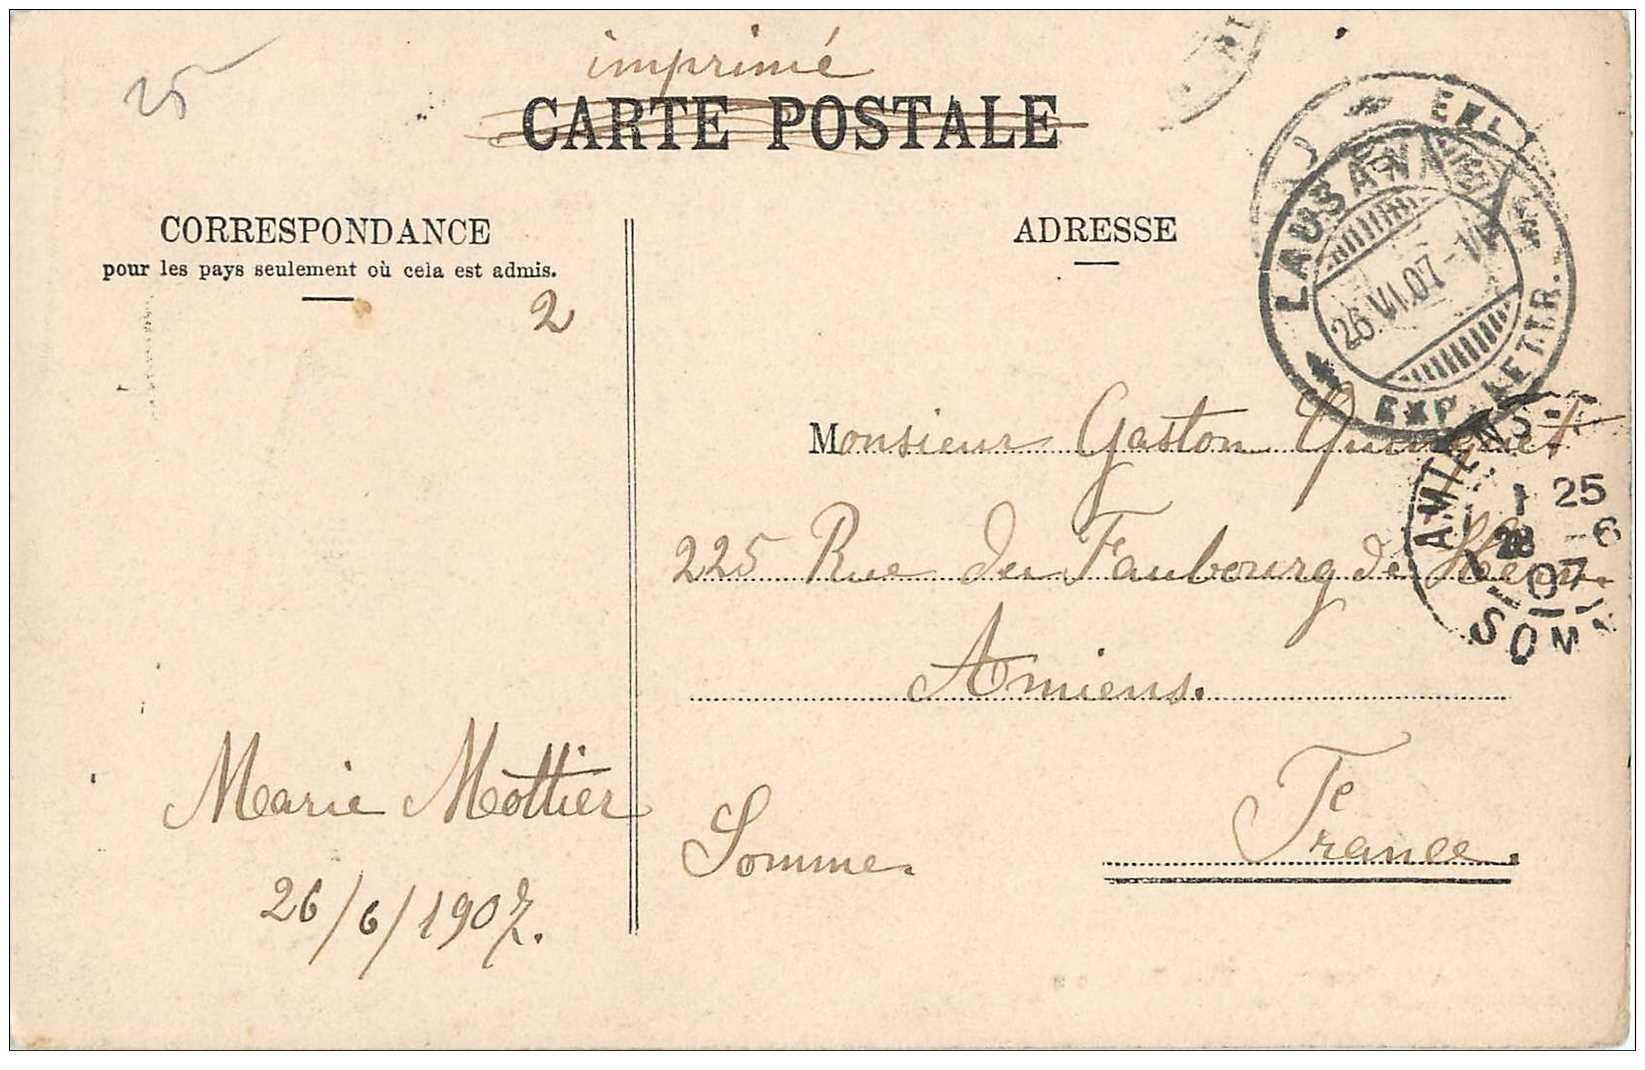 25
imprimé
CARTE POSTALE
CORRESPONDANCE
pour les pays seulement où cela est admis.
2
ADRESSE
LAUSANNE
26.VI.07
EXP. LETTR.
Monsieur Gaston
225 Rue du Faubourg de
Amiens.
Somme. France.
AMIENS
1 25
28 -6
07
SOMME
Marie Mottier
26/6/1907.